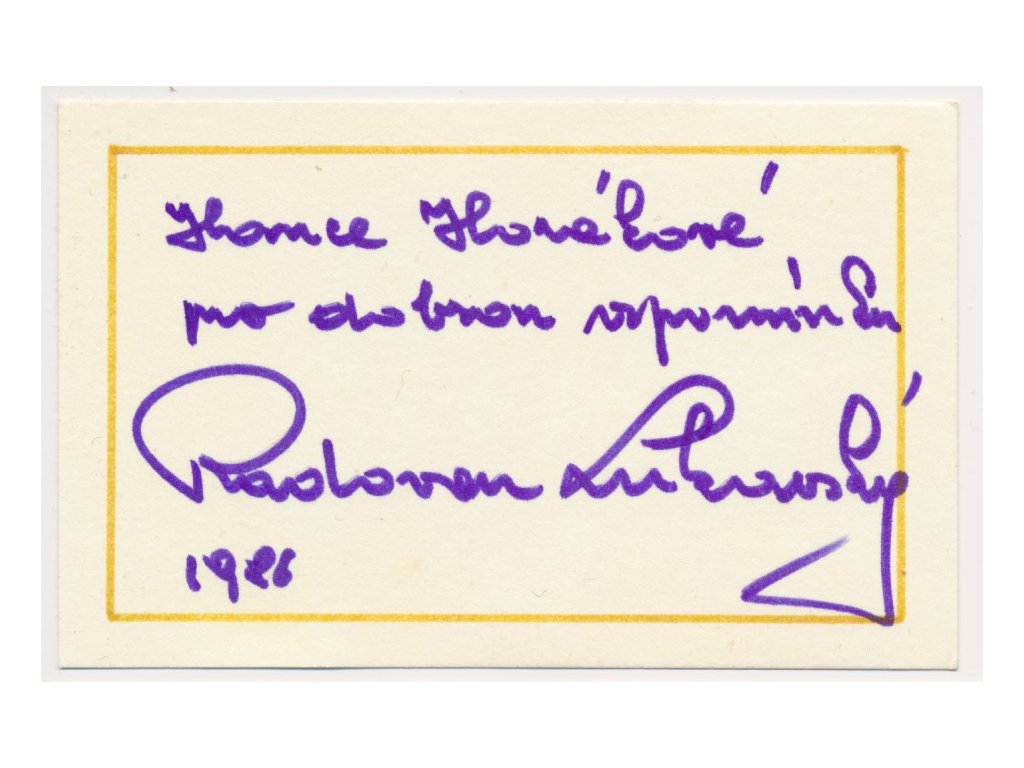 Hance Horákové
pro dobrou vzpomínku
Radovan Lukavský
1986